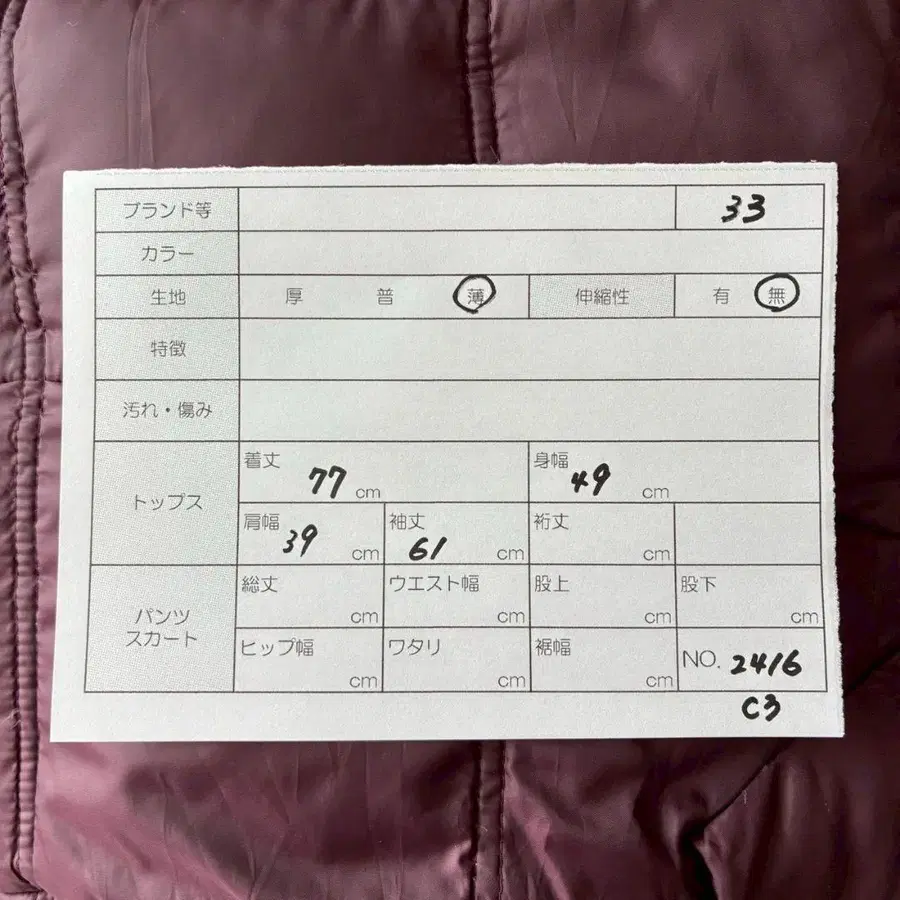 ブランド等 33
カラー
生地 厚 普 薄 伸縮性 有 無
特徴
汚れ・傷み
トップス
着丈 77 cm 身幅 49 cm
肩幅 39 cm 袖丈 61 cm 裄丈 cm
パンツ
スカート
総丈 cm ウエスト幅 cm 股上 cm 股下 cm
ヒップ幅 cm ワタリ cm 裾幅 cm NO. 2416
C3